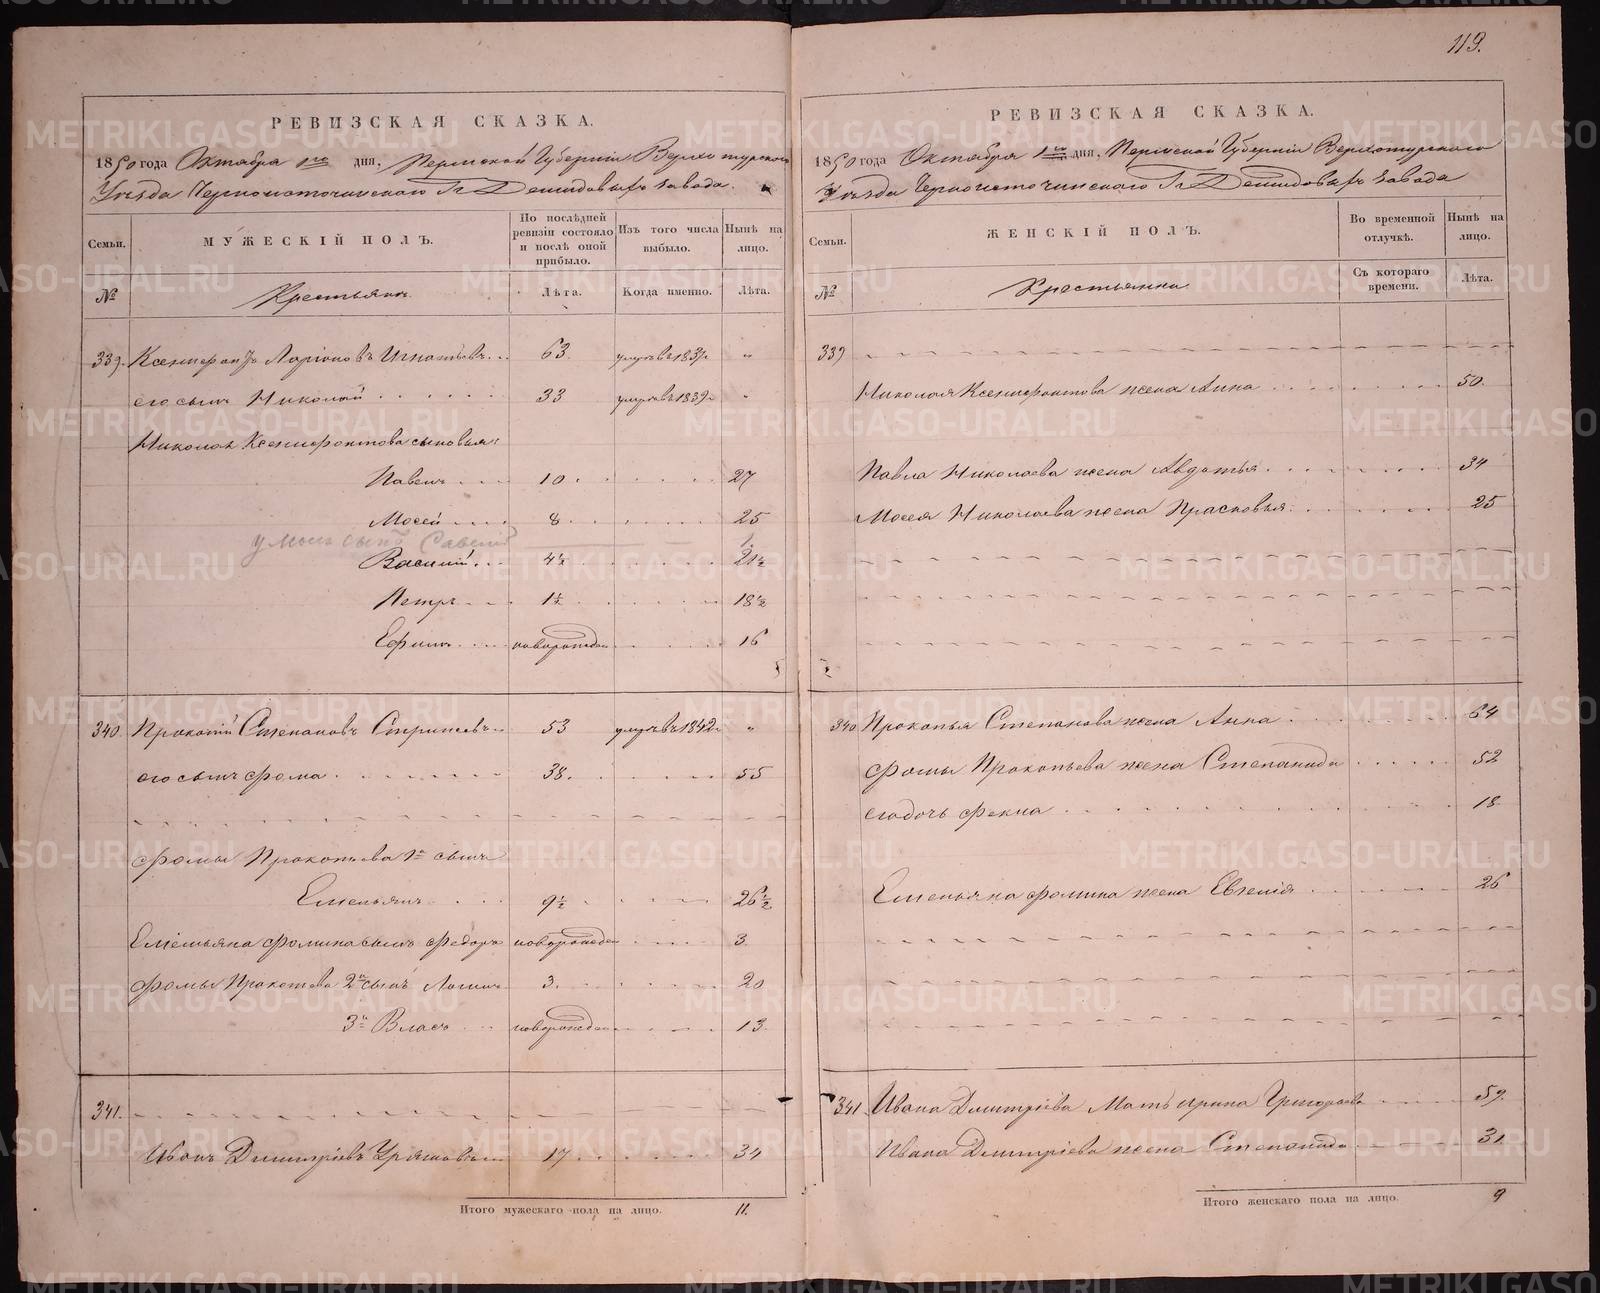 119.
РЕВИЗСКАЯ СКАЗКА.
1850 года Октября 1го дня, Пермской Губернии Верхотурского
Уезда Черноисточинского Гг Демидовыхъ завода.
Семьи. МУЖЕСКІЙ ПОЛЪ. По послѣдней ревизіи состояло и послѣ оной прибыло. Изъ того числа выбыло. Нынѣ на лицо.
№ Крестьяне Лѣта. Когда именно. Лѣта.
339. Ксенофонтъ Ларіоновъ Игнатьевъ 63. умръ въ 183 г. "
его сынъ Николай 33 умръ въ 1839 г. "
Николая Ксенофонтова сыновья:
Павелъ 10 27
Мосей 8 25
у Мося сынъ Савелій 1.
Василій 4½ 21½
Петръ 1½ 18½
Ефимъ новорожден 16
340. Прокопій Степановъ 53 умръ въ 1842 г. "
его сынъ Фома 38. 55
Фомы Прокопьева 1й сынъ
Емельянъ 9½ 26½
Емельяна Фомина сынъ Федоръ новорожден 3
Фомы Прокопьева 2й сынъ Логинъ 3. 20
3й Власъ новорожден 13
341.
Иванъ Дмитріевъ 17 34
Итого мужескаго пола на лицо. 11.
РЕВИЗСКАЯ СКАЗКА.
1850 года Октября 1го дня, Пермской Губерніи Верхотурского
Уезда Черноисточинского Гг Демидовыхъ завода
Семьи. ЖЕНСКІЙ ПОЛЪ. Во временной отлучкѣ. Нынѣ на лицо.
№ Крестьянки Съ котораго времени. Лѣта.
339
Николая Ксенофонтова жена Анна 50.
Павла Николаева жена Авдотья 34
Мосея Николаева жена Прасковья 25
340 Прокопья Степанова жена Анна 64
Фомы Прокопьева жена Степанида 52
его дочь Фекла 18
Емельяна Фомина жена Евгенія 26
341 Ивана Дмитріева Мать Ирина Григорьева 59.
Ивана Дмитріева жена Степанида 31
Итого женскаго пола на лицо. 9
METRIKI.GASO-URAL.RU